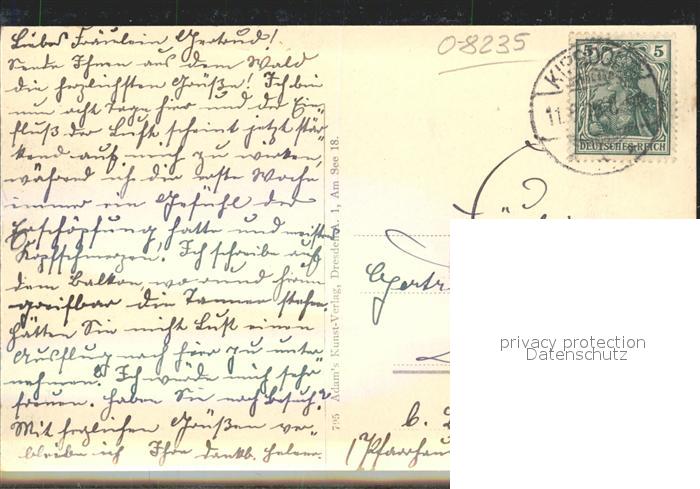 Liebes Fräulein Gertrud!
Sende Ihnen aus dem Wald
die herzlichsten Grüße! Ich bin
nun acht Tage hier und der Ein-
fluß der Luft scheint jetzt stär-
kend auf mich zu wirken,
während ich die erste Woche
immer ein Gefühl der
Erschöpfung hatte und meistens
Kopfschmerzen. Ich schreibe auf
dem Balkon, wo rund herum
greifbar die Tannen stehen.
Hätten Sie nicht Lust einen
Ausflug nach hier zu unter-
nehmen? Ich würde mich sehr
freuen. Haben Sie noch Besuch?
Mit herzlichen Grüßen ver-
bleibe ich Ihre dankb. Helene.
795 Adam's Kunst-Verlag, Dresden-A. 1, Am See 18.
O-8235
5
DEUTSCHES REICH
11.
Gertr
b.
Pfarrhau
privacy protection
Datenschutz